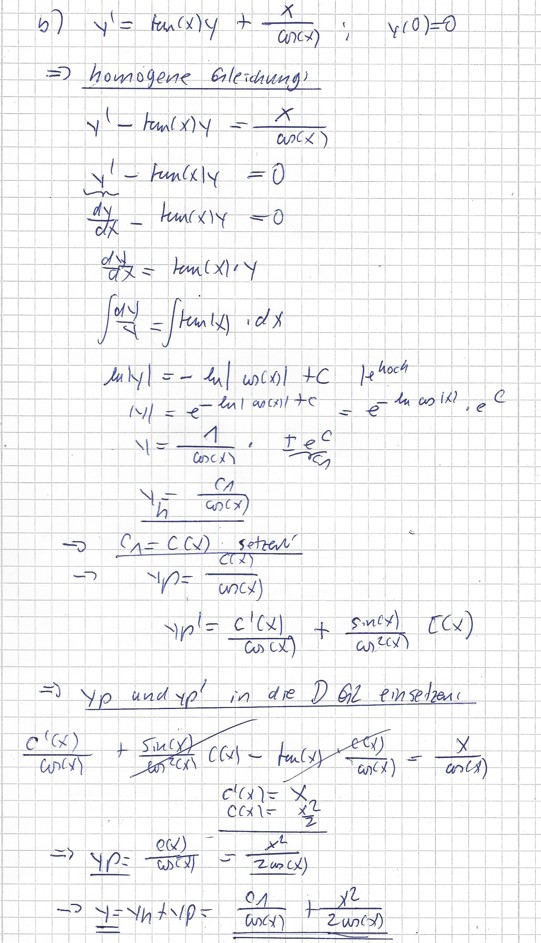 b) y' = tan(x)y + x/cos(x) ; y(0)=0
=> homogene Gleichung:
y' - tan(x)y = x/cos(x)
y' - tan(x)y = 0
dy/dx - tan(x)y = 0
dy/dx = tan(x)·y
∫dy/y = ∫tan(x)·dx
ln|y| = -ln|cos(x)| + C |e^hoch
|y| = e^(-ln|cos(x)|+C) = e^(-ln cos(x)) · e^C
y = 1/cos(x) · ±e^C
C1
yh = C1/cos(x)
=> C1 = C(x) setzen:
=> yp = C(x)/cos(x)
yp' = C'(x)/cos(x) + sin(x)/cos²(x) C(x)
=> yp und yp' in die DGL einsetzen:
C'(x)/cos(x) + sin(x)/cos²(x) C(x) - tan(x) · C(x)/cos(x) = x/cos(x)
C'(x) = x
C(x) = x²/2
=> yp = C(x)/cos(x) = x²/2cos(x)
=> y = yh + yp = C1/cos(x) + x²/2cos(x)